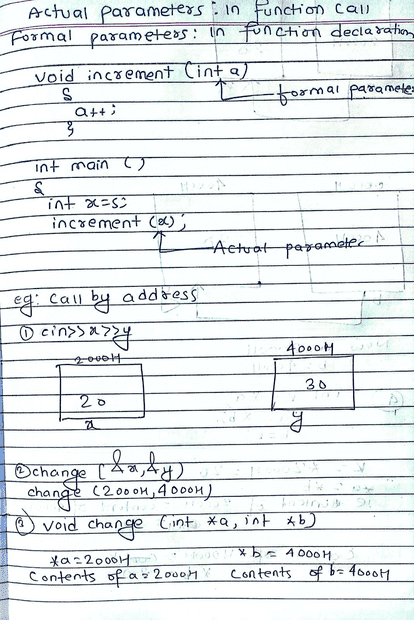 Actual parameters : In function call
Formal parameters : In function declaration
void increment (int a)
{
formal parameter
a++;
}
int main ()
{
int x=5;
increment (x);
Actual parameter
eg: Call by address
① cin>>x>>y
2000H
4000H
20
30
x
y
② change (&x,&y)
change (2000H,4000H)
③ void change (int *a, int *b)
*a=2000H
*b = 4000H
Contents of a=2000H
Contents of b=4000H